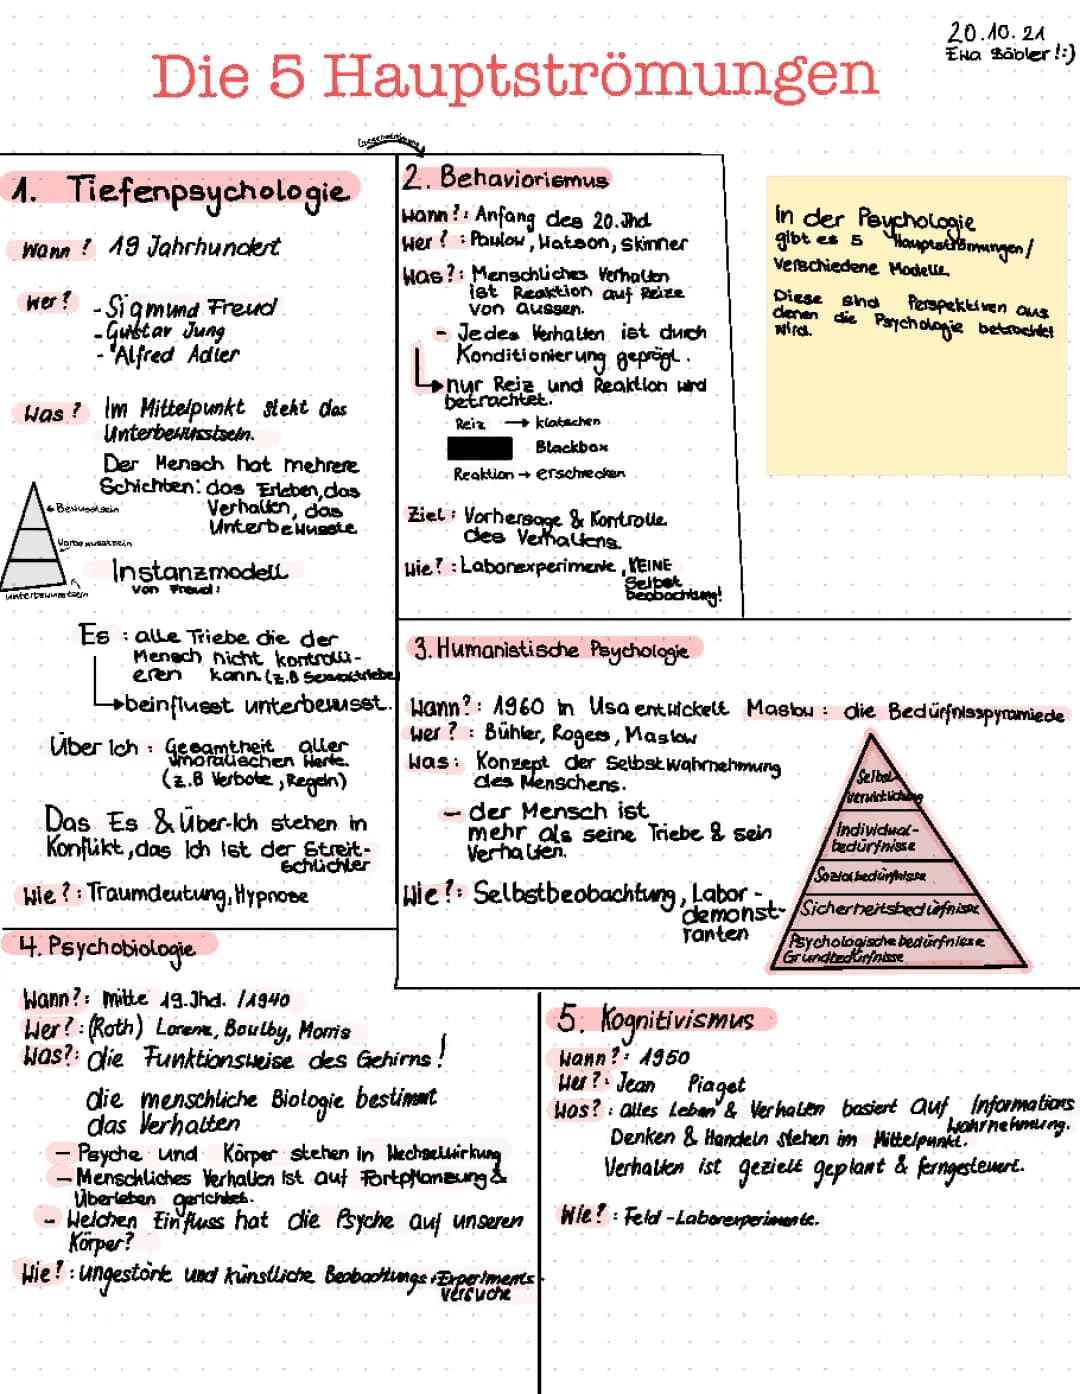 20.10.21
Die 5 Hauptströmungen
1. Tiefenpsychologie
Wann? 19 Jahrhundert
Wer? - Sigmund Freud
- Gustav Jung
- Alfred Adler
Was? Im Mittelpunkt steht das
Unterbewusstsein.
Der Mensch hat mehrere
Schichten: das Erleben, das
Verhalten, das
Unterbewusste
Bewusstsein
Vorbewusstsein
Unterbewusstsein
Instanzmodell
von Freud:
Es : alle Triebe die der
Mensch nicht kontrolli-
eren kann. (z.B Sexualtriebe)
beinflusst unterbewusst.
Über Ich : Gesamtheit aller
moralischen Werte.
(z.B Verbote, Regeln)
Das Es & Über-Ich stehen in
Konflikt, das Ich ist der Streit-
schlichter
Wie? : Traumdeutung, Hypnose
2. Behaviorismus
Wann? : Anfang des 20. Jhd.
Wer? : Pawlow, Watson, Skinner
Was? : Menschliches Verhalten
ist Reaktion auf Reize
von aussen.
- Jedes Verhalten ist durch
Konditionierung geprägt.
nur Reiz und Reaktion wird
betrachtet.
Reiz → klatschen
Blackbox
Reaktion → erschrecken
Ziel : Vorhersage & Kontrolle
des Verhaltens.
Wie? : Laborexperimente, KEINE
Selbst
beobachtung!
In der Psychologie
gibt es 5 Hauptströmungen/
Verschiedene Modelle.
Diese sind Perspektiven aus
denen die Psychologie betrachtet
wird.
3. Humanistische Psychologie
Wann? : 1960 in Usa entwickelt
Wer? : Bühler, Rogers, Maslow
Was : Konzept der Selbstwahrnehmung
des Menschens.
- der Mensch ist
mehr als seine Triebe & sein
Verhalten.
Wie? : Selbstbeobachtung, Labor-
demonst-
ranten
Maslow : die Bedürfnisspyramiede
Selbst
verwirklichung
Individual-
bedürfnisse
Sozialbedürfnisse
Sicherheitsbedürfnisse
Psychologische bedürfnisse
Grundbedürfnisse
4. Psychobiologie
Wann? : mitte 19. Jhd. /1940
Wer? : (Roth) Lorenz, Boulby, Morris
Was? : die Funktionsweise des Gehirns!
die menschliche Biologie bestimmt
das Verhalten
- Psyche und Körper stehen in Wechselwirkung
- Menschliches Verhalten ist auf Fortpflanzung &
Überleben gerichtet.
- Welchen Einfluss hat die Psyche auf unseren
Körper?
Wie? : ungestörte und künstliche Beobachtungs + Experiments
versuche
5. Kognitivismus
Wann? : 1950
Wer? : Jean Piaget
Was? : alles Leben & Verhalten basiert auf Informations
wahrnehmung.
Denken & Handeln stehen im Mittelpunkt.
Verhalten ist gezielt geplant & ferngesteuert.
Wie? : Feld-Laborexperimente.